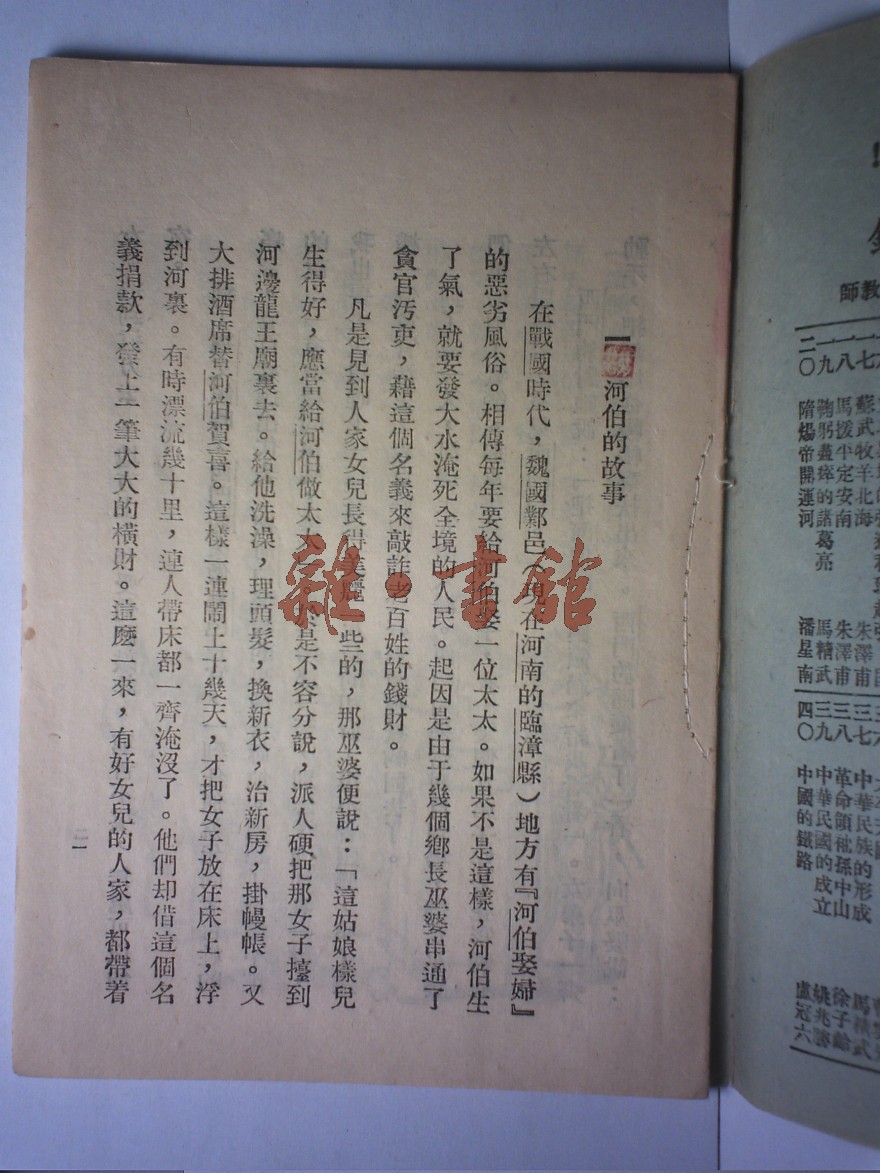 一 河伯的故事
在戰國時代，魏國鄴邑（現在河南的臨漳縣）地方有『河伯娶婦』
的惡劣風俗。相傳每年要給河伯娶一位太太。如果不是這樣，河伯生
了氣，就要發大水淹死全境的人民。起因是由于幾個鄉長巫婆串通了
貪官汚吏，藉這個名義來敲詐老百姓的錢財。
凡是見到人家女兒長得美麗一些的，那巫婆便說：「這姑娘樣兒
生得好，應當給河伯做太太。於是不容分說，派人硬把那女子擡到
河邊龍王廟裏去。給他洗澡，理頭髮，換新衣，治新房，掛幔帳。又
大排酒席替河伯賀喜。這樣一連鬧上十幾天，才把女子放在床上，浮
到河裏。有時漂流幾十里，連人帶床都一齊淹沒了。他們却借這個名
義捐款，發上一筆大大的橫財。這麽一來，有好女兒的人家，都帶着
一
雜·書館
師教
蘇武牧羊北海
一八 馬援平定安南 朱澤甫
一九 鞠躬盡瘁的諸葛亮 馬精武
二〇 隋煬帝開運河 潘星南
中華民族的形成
三八 革命領袖孫中山 徐子齡
三九 中華民國的成立 姚兆勝
四〇 中國的鐵路 盧冠六